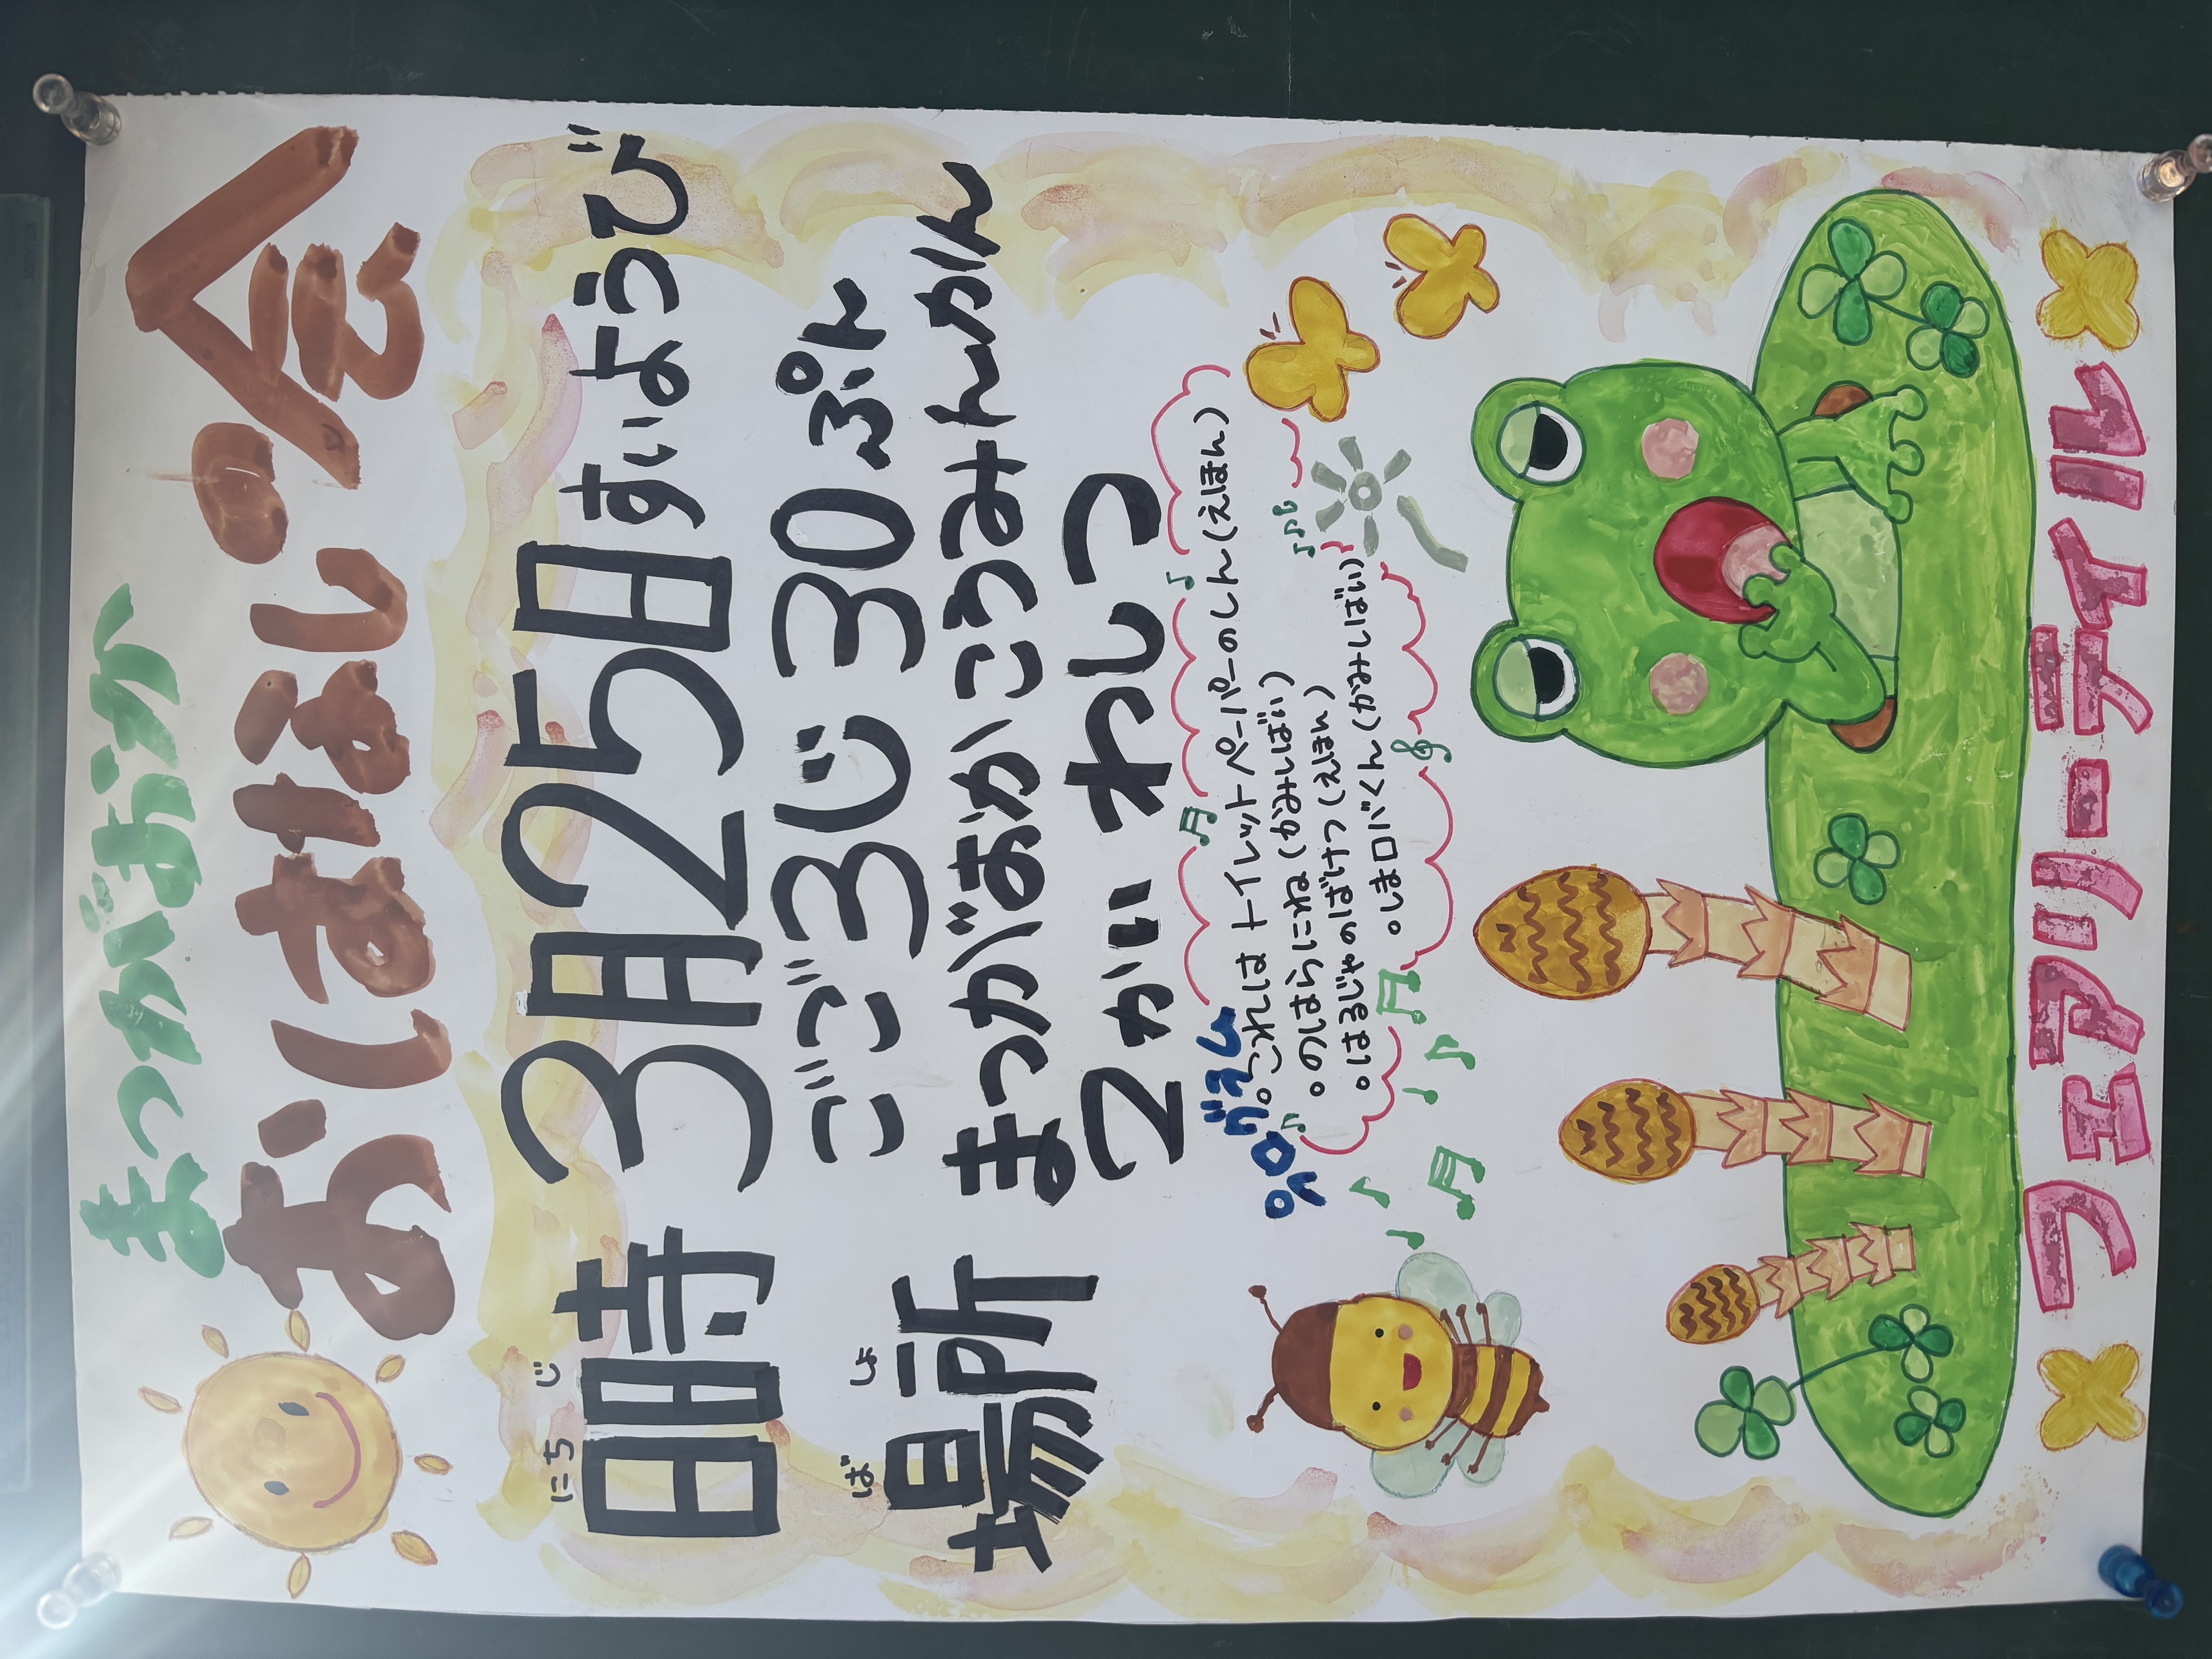 まつがおか
おはなしの会
え
にちじ
日時 3月25日すいようび
ごご3じ30ぷん
ばしょ
場所 まつがおかこうみんかん
2かい わしつ
プログラム
。これは トイレットペーパーのしん(えほん)
。のはらにね(かみしばい)
。はるじゃのばけつ(えほん)
。しまロバくん(かみしばい)
フェアリーテイル